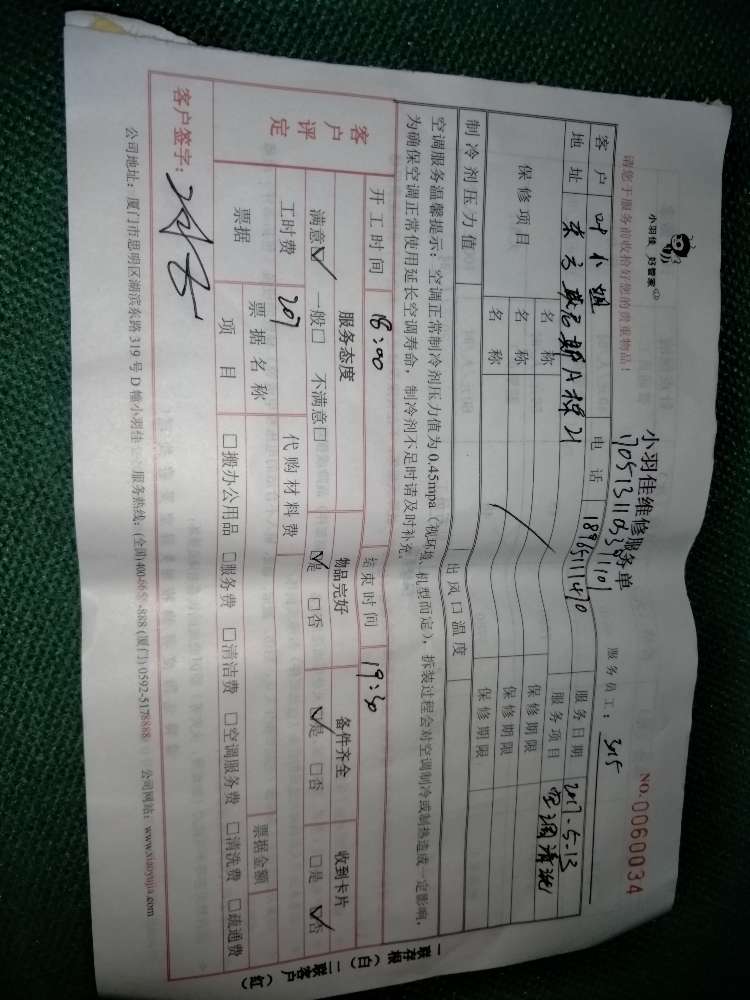 小羽佳 好管家
小羽佳维修服务单
NO:0060034
服务员工：
请您于服务前收拾好您的贵重物品！
客户 叶小姐 电话 服务日期 2017-5-13
地址 服务项目 空调清洗
保修项目 名称 保修期限
名称 保修期限
名称 保修期限
制冷剂压力值 出风口温度
空调服务温馨提示：空调正常制冷剂压力值为0.45mpa（视环境、机型而定），拆装过程会对空调制冷或制热造成一定影响，
为确保空调正常使用延长空调寿命，制冷剂不足时请及时补充。
开工时间 18:00 结束时间 19:30
客户评定 服务态度 物品完好 备件齐全 收到卡片
满意☑ 一般□ 不满意□ ☑是 □否 ☑是 □否 □是 ☑否
工时费 207 代购材料费
票据 票据名称 票据金额
项目 □搬办公用品 □服务费 □清洁费 □空调服务费 □清洗费 □疏通费
客户签字：
公司地址：厦门市思明区湖滨东路319号D幢小羽佳 服务热线：(全国)400-665 -888 (厦门) 0592-5178888 公司网站：www.xiaoyujia.com
一联存根（白） 二联客户（红）